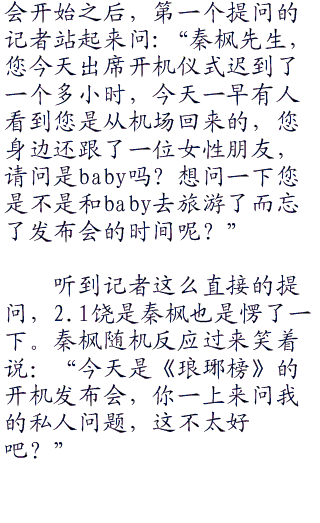 会开始之后，第一个提问的
记者站起来问：“秦枫先生，
您今天出席开机仪式迟到了
一个多小时，今天一早有人
看到您是从机场回来的，您
身边还跟了一位女性朋友，
请问是baby吗？想问一下您
是不是和baby去旅游了而忘
了发布会的时间呢？”
听到记者这么直接的提
问，2.1饶是秦枫也是愣了一
下。秦枫随机反应过来笑着
说：“今天是《琅琊榜》的
开机发布会，你一上来问我
的私人问题，这不太好
吧？”